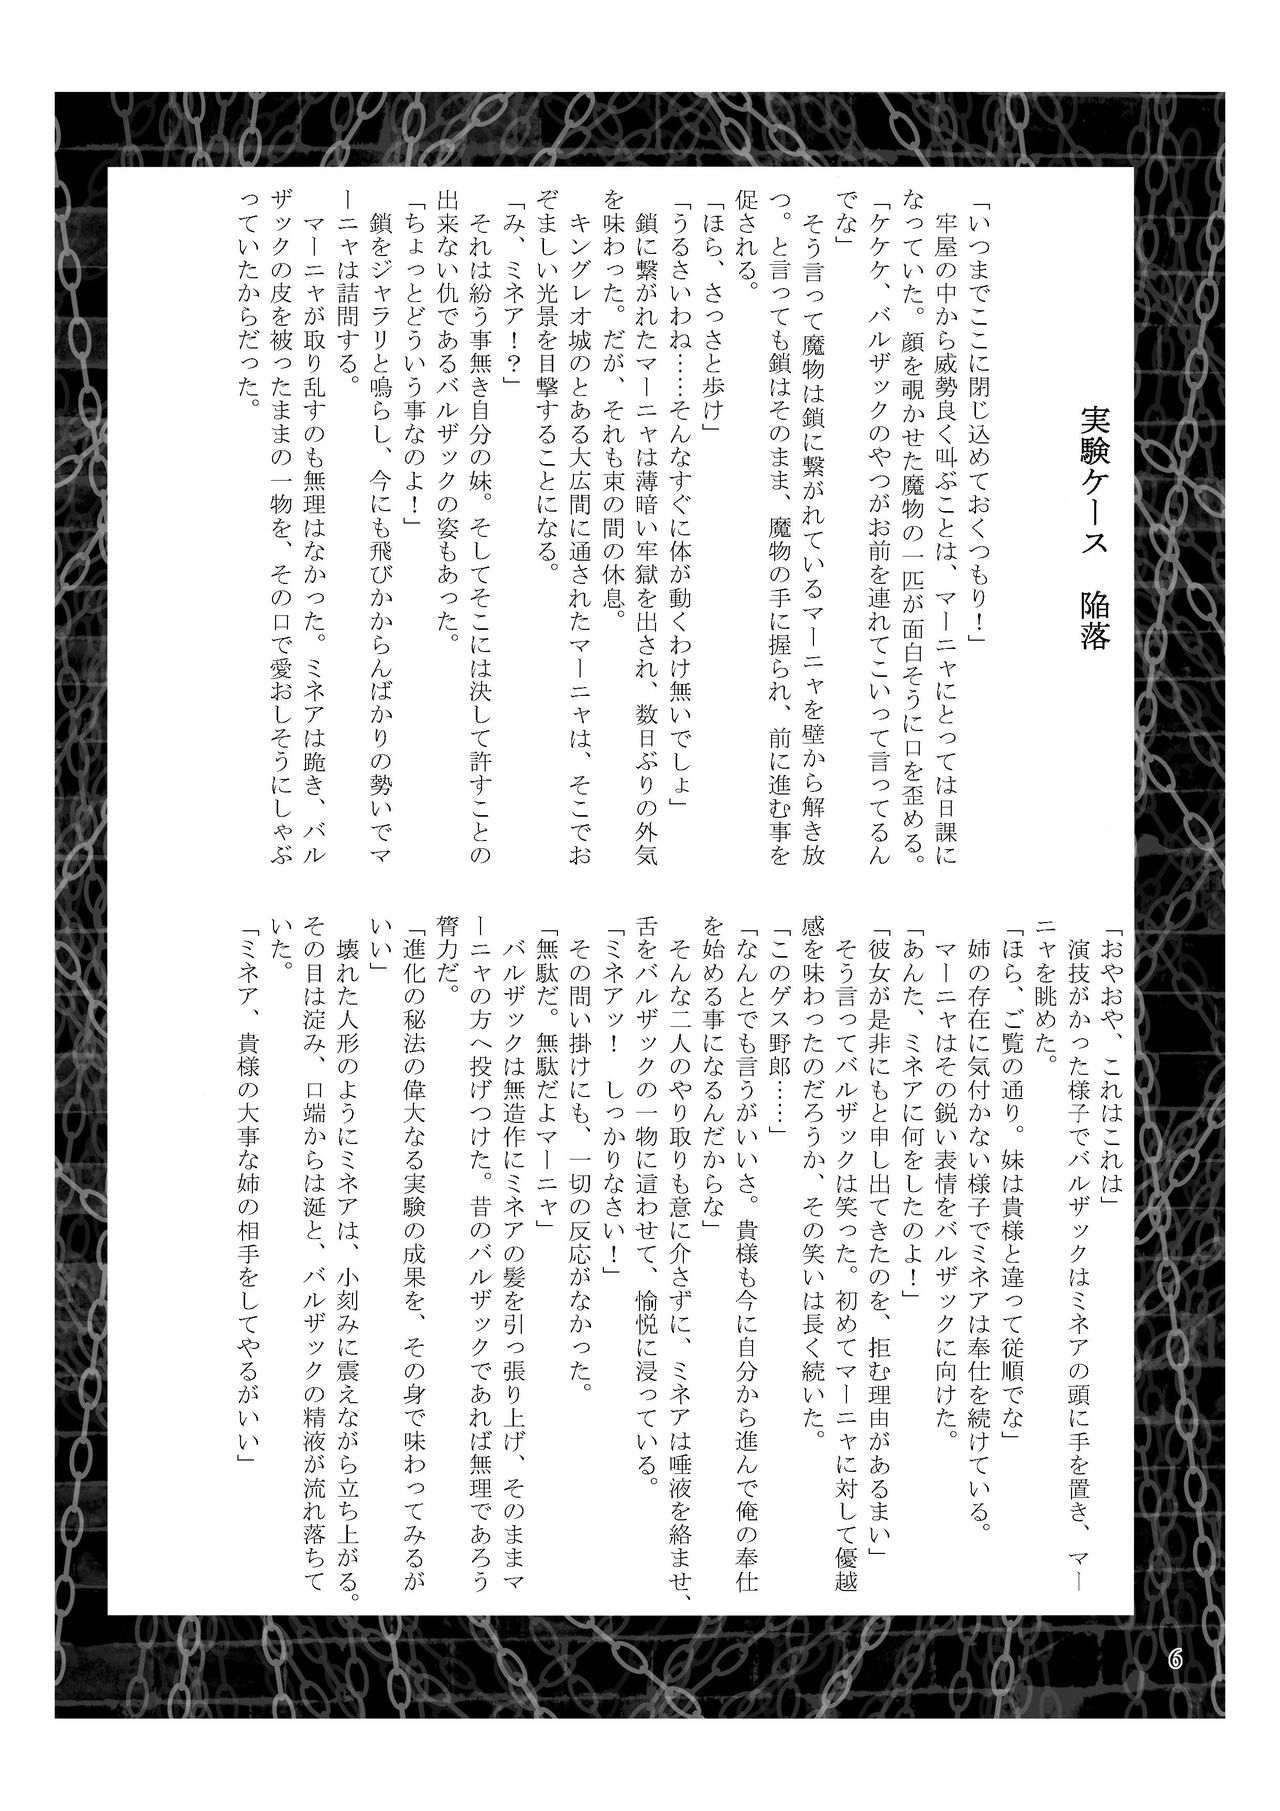 実験ケース　陥落
「いつまでここに閉じ込めておくつもり！」
牢屋の中から威勢良く叫ぶことは、マーニャにとっては日課に
なっていた。顔を覗かせた魔物の一匹が面白そうに口を歪める。
「ケケケ、バルザックのやつがお前を連れてこいって言ってるん
でな」
そう言って魔物は鎖に繋がれているマーニャを壁から解き放
つ。と言っても鎖はそのまま、魔物の手に握られ、前に進む事を
促される。
「ほら、さっさと歩け」
「うるさいわね……そんなすぐに体が動くわけ無いでしょ」
鎖に繋がれたマーニャは薄暗い牢獄を出され、数日ぶりの外気
を味わった。だが、それも束の間の休息。
キングレオ城のとある大広間に通されたマーニャは、そこでお
ぞましい光景を目撃することになる。
「み、ミネア！？」
それは紛う事無き自分の妹。そしてそこには決して許すことの
出来ない仇であるバルザックの姿もあった。
「ちょっとどういう事なのよ！」
鎖をジャラリと鳴らし、今にも飛びかからんばかりの勢いでマ
ーニャは詰問する。
マーニャが取り乱すのも無理はなかった。ミネアは跪き、バル
ザックの皮を被ったままの一物を、その口で愛おしそうにしゃぶ
っていたからだった。
「おやおや、これはこれは」
演技がかった様子でバルザックはミネアの頭に手を置き、マー
ニャを眺めた。
「ほら、ご覧の通り。妹は貴様と違って従順でな」
姉の存在に気付かない様子でミネアは奉仕を続けている。
マーニャはその鋭い表情をバルザックに向けた。
「あんた、ミネアに何をしたのよ！」
「彼女が是非にもと申し出てきたのを、拒む理由があるまい」
そう言ってバルザックは笑った。初めてマーニャに対して優越
感を味わったのだろうか、その笑いは長く続いた。
「このゲス野郎……」
「なんとでも言うがいいさ。貴様も今に自分から進んで俺の奉仕
を始める事になるんだからな」
そんな二人のやり取りも意に介さずに、ミネアは唾液を絡ませ、
舌をバルザックの一物に這わせて、愉悦に浸っている。
「ミネアッ！　しっかりなさい！」
その問い掛けにも、一切の反応がなかった。
「無駄だ。無駄だよマーニャ」
バルザックは無造作にミネアの髪を引っ張り上げ、そのままマ
ーニャの方へ投げつけた。昔のバルザックであれば無理であろう
膂力だ。
「進化の秘法の偉大なる実験の成果を、その身で味わってみるが
いい」
壊れた人形のようにミネアは、小刻みに震えながら立ち上がる。
その目は淀み、口端からは涎と、バルザックの精液が流れ落ちて
いた。
「ミネア、貴様の大事な姉の相手をしてやるがいい」
6